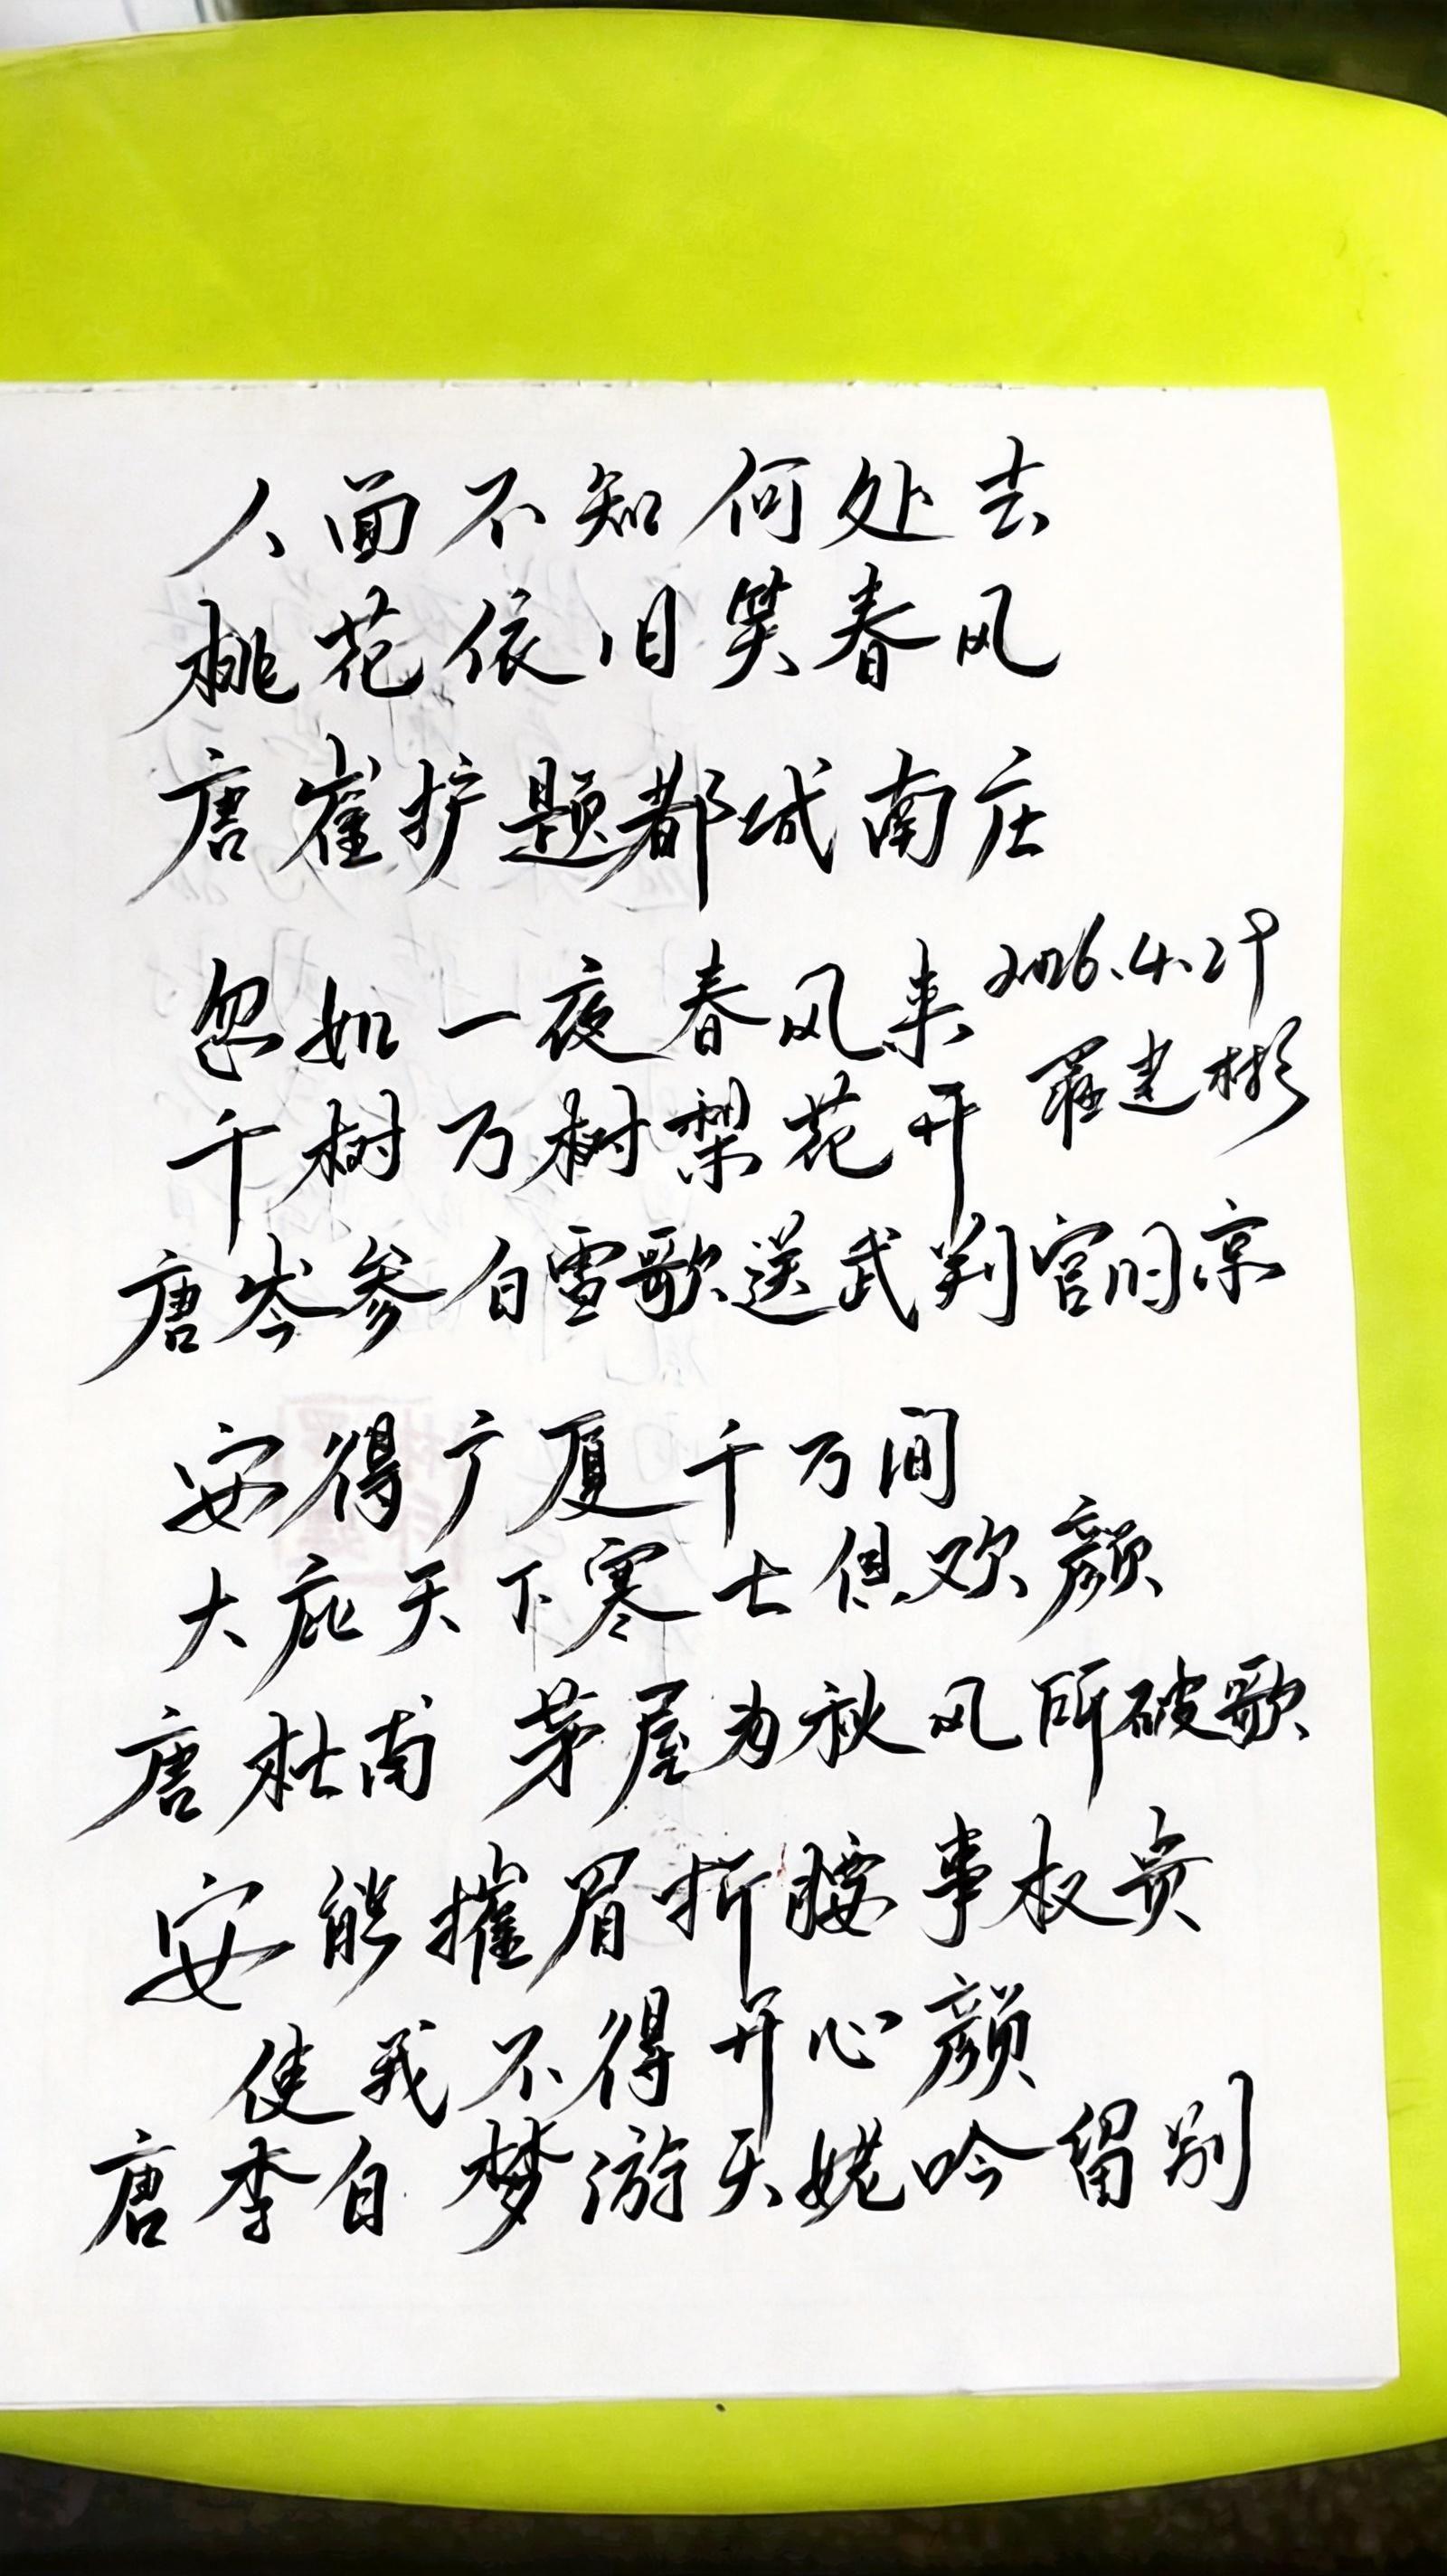 人面不知何处去
桃花依旧笑春风
唐崔护题都城南庄
忽如一夜春风来
2026.4.29
千树万树梨花开
罗建彬
唐岑参白雪歌送武判官归京
安得广厦千万间
大庇天下寒士俱欢颜
唐杜甫 茅屋为秋风所破歌
安能摧眉折腰事权贵
使我不得开心颜
唐李白 梦游天姥吟留别